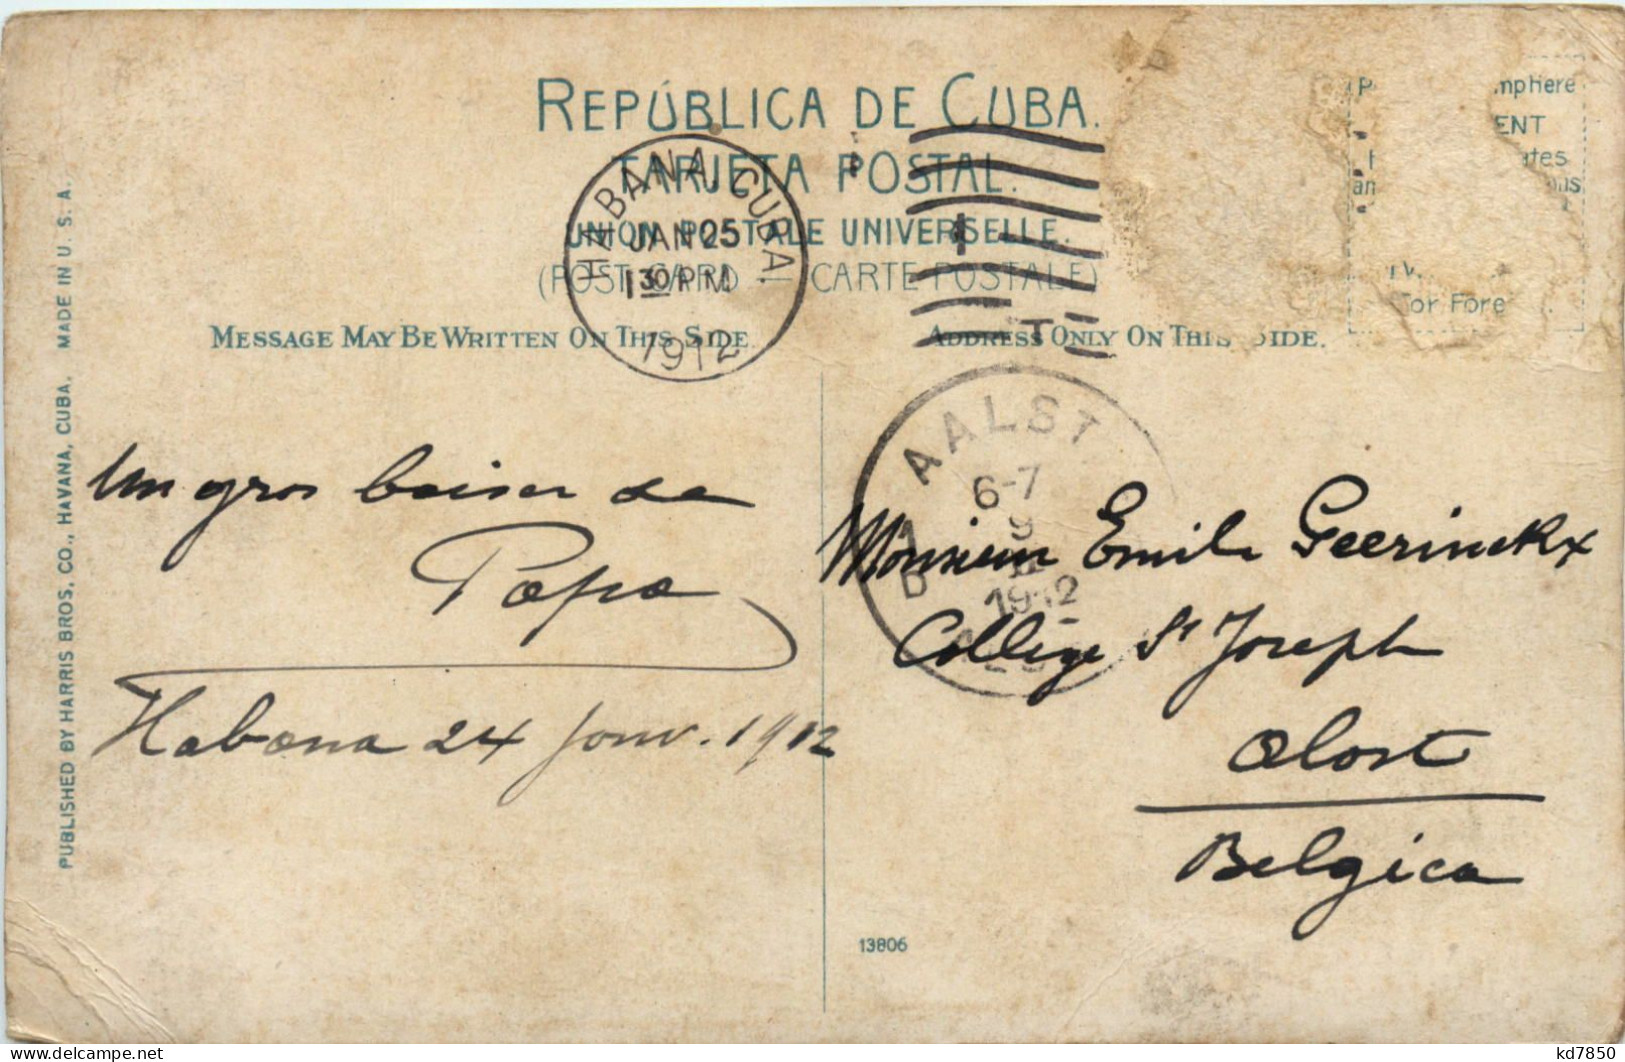 REPÚBLICA DE CUBA.
TARJETA POSTAL.
UNION POSTALE UNIVERSELLE.
(POST CARD) (CARTE POSTALE)
MESSAGE MAY BE WRITTEN ON THIS SIDE.
ADDRESS ONLY ON THIS SIDE.
HABANA, CUBA.
JAN 25
1 30 PM
1912
ENT
for Fore
PUBLISHED BY HARRIS BROS. CO., HAVANA, CUBA. MADE IN U. S. A.
Un gros baiser de
Papa
Habana 24 janv. 1912
AALST
6-7
9
1912
Monsieur Emile Geerinckx
Collège St Joseph
Alost
Belgica
13806
kd7850